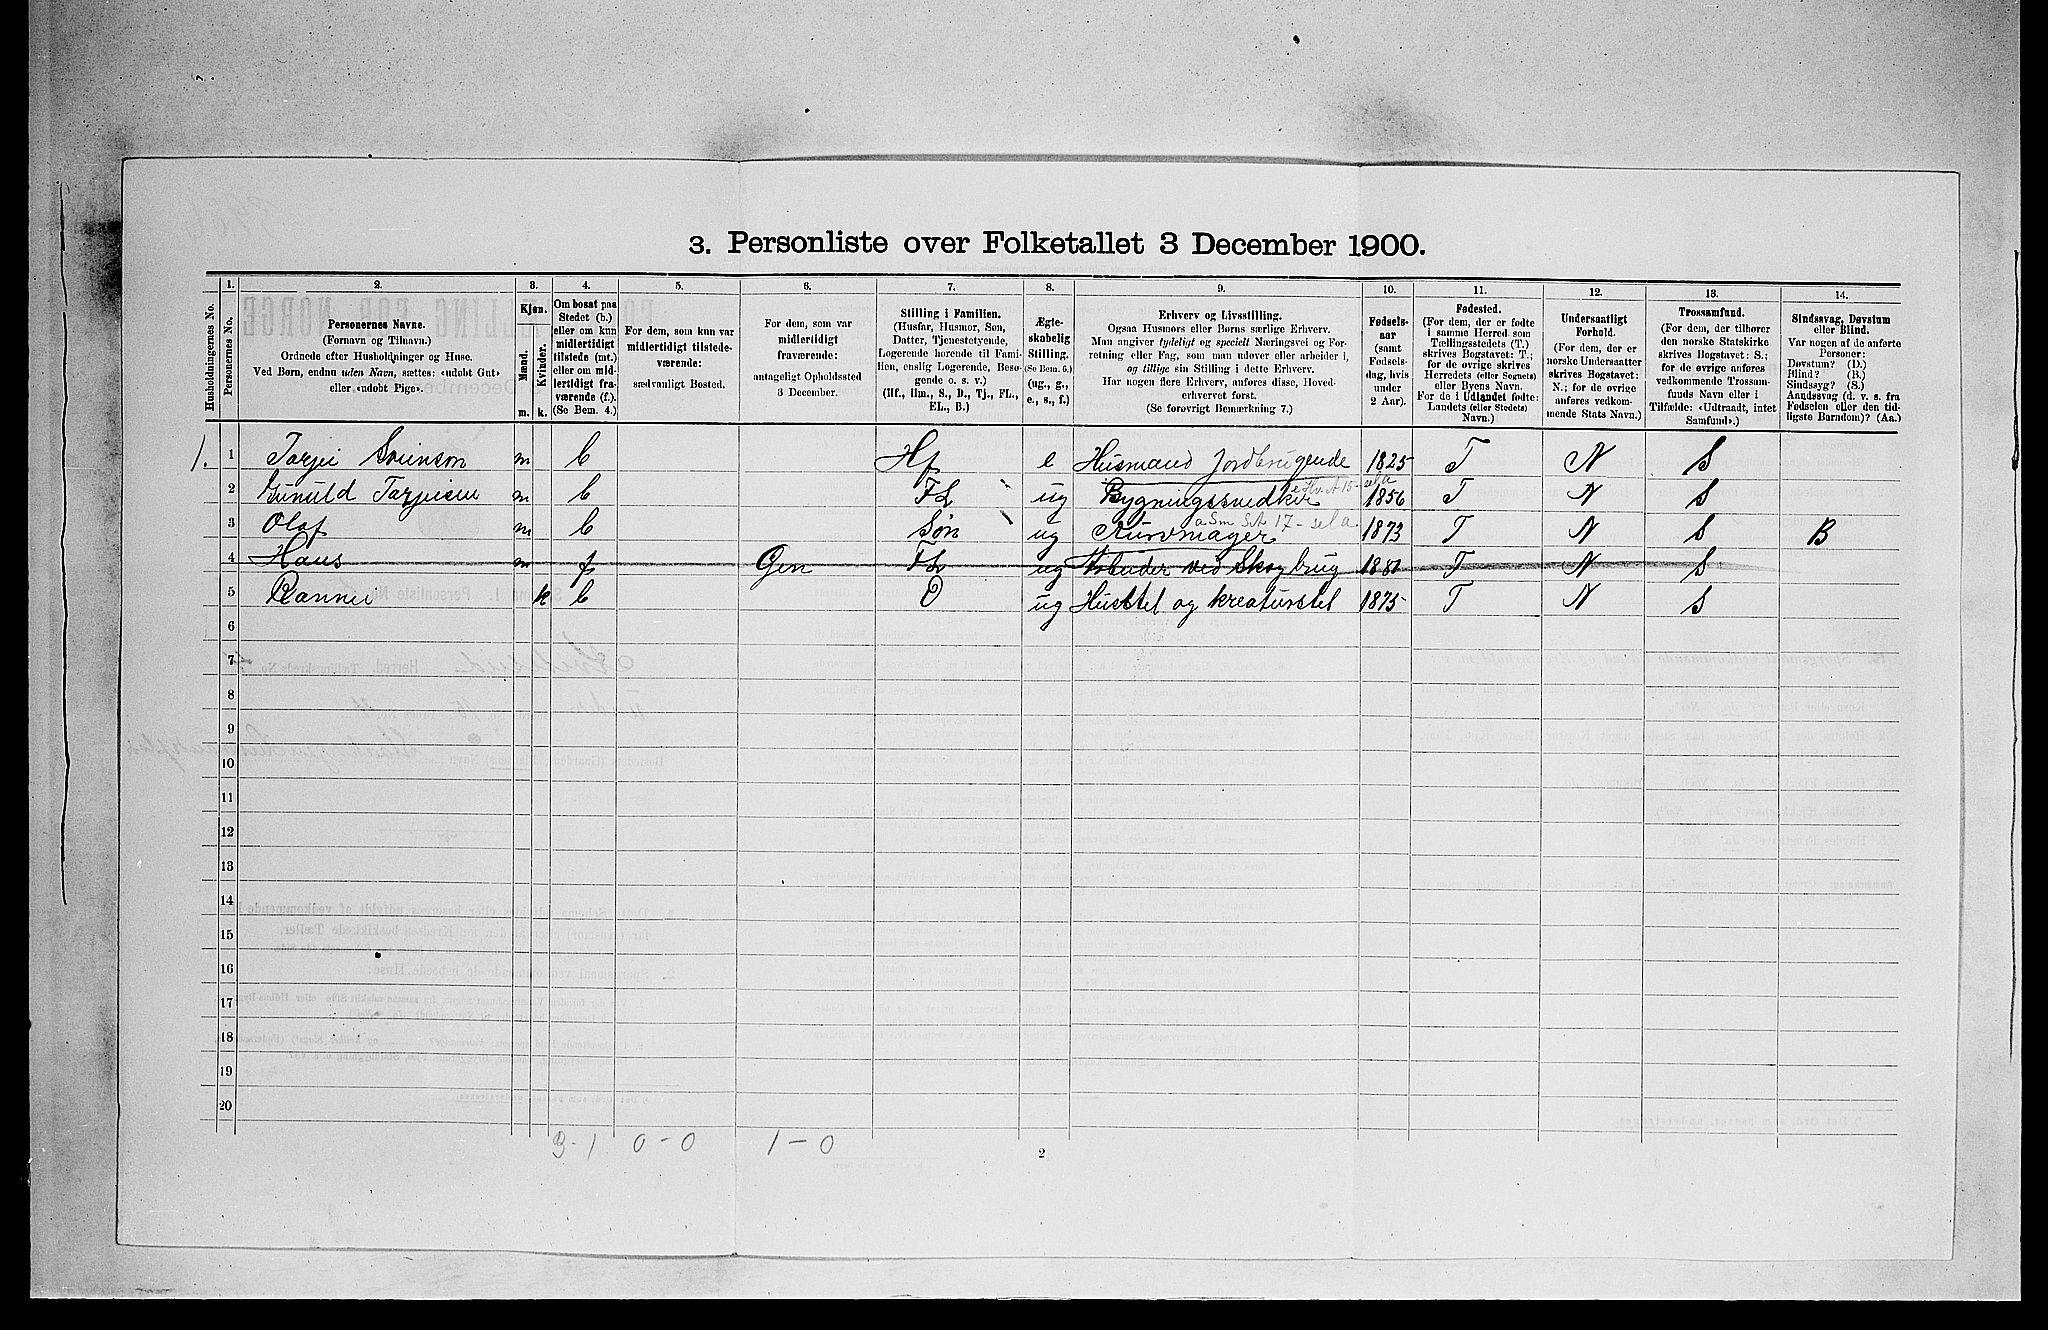 3. Personliste over Folketallet 3 December 1900.
Husholdningernes No.
1.
Personernes No.
2.
Personernes Navne.
(Fornavn og Tilnavn.)
Ordnede efter Husholdninger og Huse.
Ved Børn, endnu uden Navn, sættes: «udøbt Gut»
eller «udøbt Pige».
3.
Kjøn.
Mænd.
Kvinder.
m.
k.
4.
Om bosat paa
Stedet (b.)
eller om kun
midlertidigt
tilstede (mt.)
eller om mid-
lertidigt fra-
værende (f.).
(Se Bem. 4.)
5.
For dem, som kun var
midlertidigt tilstede-
værende:
sædvanligt Bosted.
6.
For dem, som var
midlertidigt
fraværende:
antageligt Opholdssted
3 December.
7.
Stilling i Familien.
(Husfar, Husmor, Søn,
Datter, Tjenestetyende,
Logerende hørende til Fami-
lien, enslig Logerende, Besø-
gende o. s. v.)
(Hf., Hm., S., D., Tj., FL.,
EL., B.)
8.
Ægte-
skabelig
Stilling.
(Se Bem. 6.)
(ug., g.,
e., s., f.)
9.
Erhverv og Livsstilling.
Ogsaa Husmors eller Børns særlige Erhverv.
Man angiver tydeligt og specielt Næringsvei og For-
retning eller Fag, som man udøver eller arbeider i,
og tillige sin Stilling i dette Erhverv.
Har nogen flere Erhverv, anføres disse, Hoved-
erhvervet først.
(Se forøvrigt Bemærkning 7.)
10.
Fødsels-
aar
(samt
Fødsels-
dag, hvis
under
2 Aar).
11.
Fødested.
(For dem, der er fødte
i samme Herred som
Tællingsstedets (T.)
skrives Bogstavet: T.;
for de øvrige skrives
Herredets (eller Sognets)
eller Byens Navn.
For de i Udlandet fødte:
Landets (eller Stedets)
Navn.)
12.
Undersaatligt
Forhold.
(For dem, der er
norske Undersaatter
skrives Bogstavet:
N.; for de øvrige
anføres vedkom-
mende Stats Navn.)
13.
Trossamfund.
(For dem, der tilhører
den norske Statskirke
skrives Bogstavet: S.;
for de øvrige anføres
vedkommende Trossam-
funds Navn eller i
Tilfælde: «Udtraadt, intet
Samfund».)
14.
Sindssvag, Døvstum
eller Blind.
Var nogen af de anførte
Personer:
Døvstum? (D.)
Blind? (B.)
Sindssyg? (S.)
Aandssvag (d. v. s. fra
Fødselen eller den tid-
ligste Barndom)? (Aa.)
1. 1 Tarjei Sveinson m b Hf e Husmand Jordbrugende 1825 T N S
2 Gunuld Tarjeisen m b FL ug Bygningssnedker 1856 T N S
3 Olaf m b Søn ug Kurvmager 1873 T N S B
4 Hans m f FL ug Arbeider ved Skogbrug 1881 T N S
5 k b D ug Husstel og kreaturstel 1875 T N S
6
7
8
9
10
11
12
13
14
15
16
17
18
19
20
3-1 0-0 1-0
2